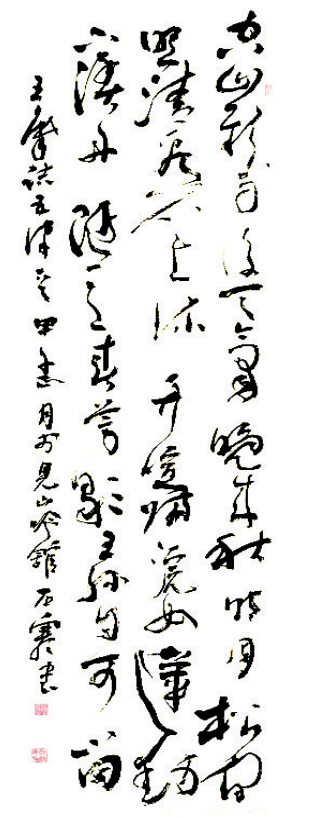 空山新雨後天氣晚來秋明月松間
照清泉石上流竹喧歸浣女蓮動
下漁舟隨意春芳歇王孫自可留
王摩詰五律 甲 月於見山吟館石 書